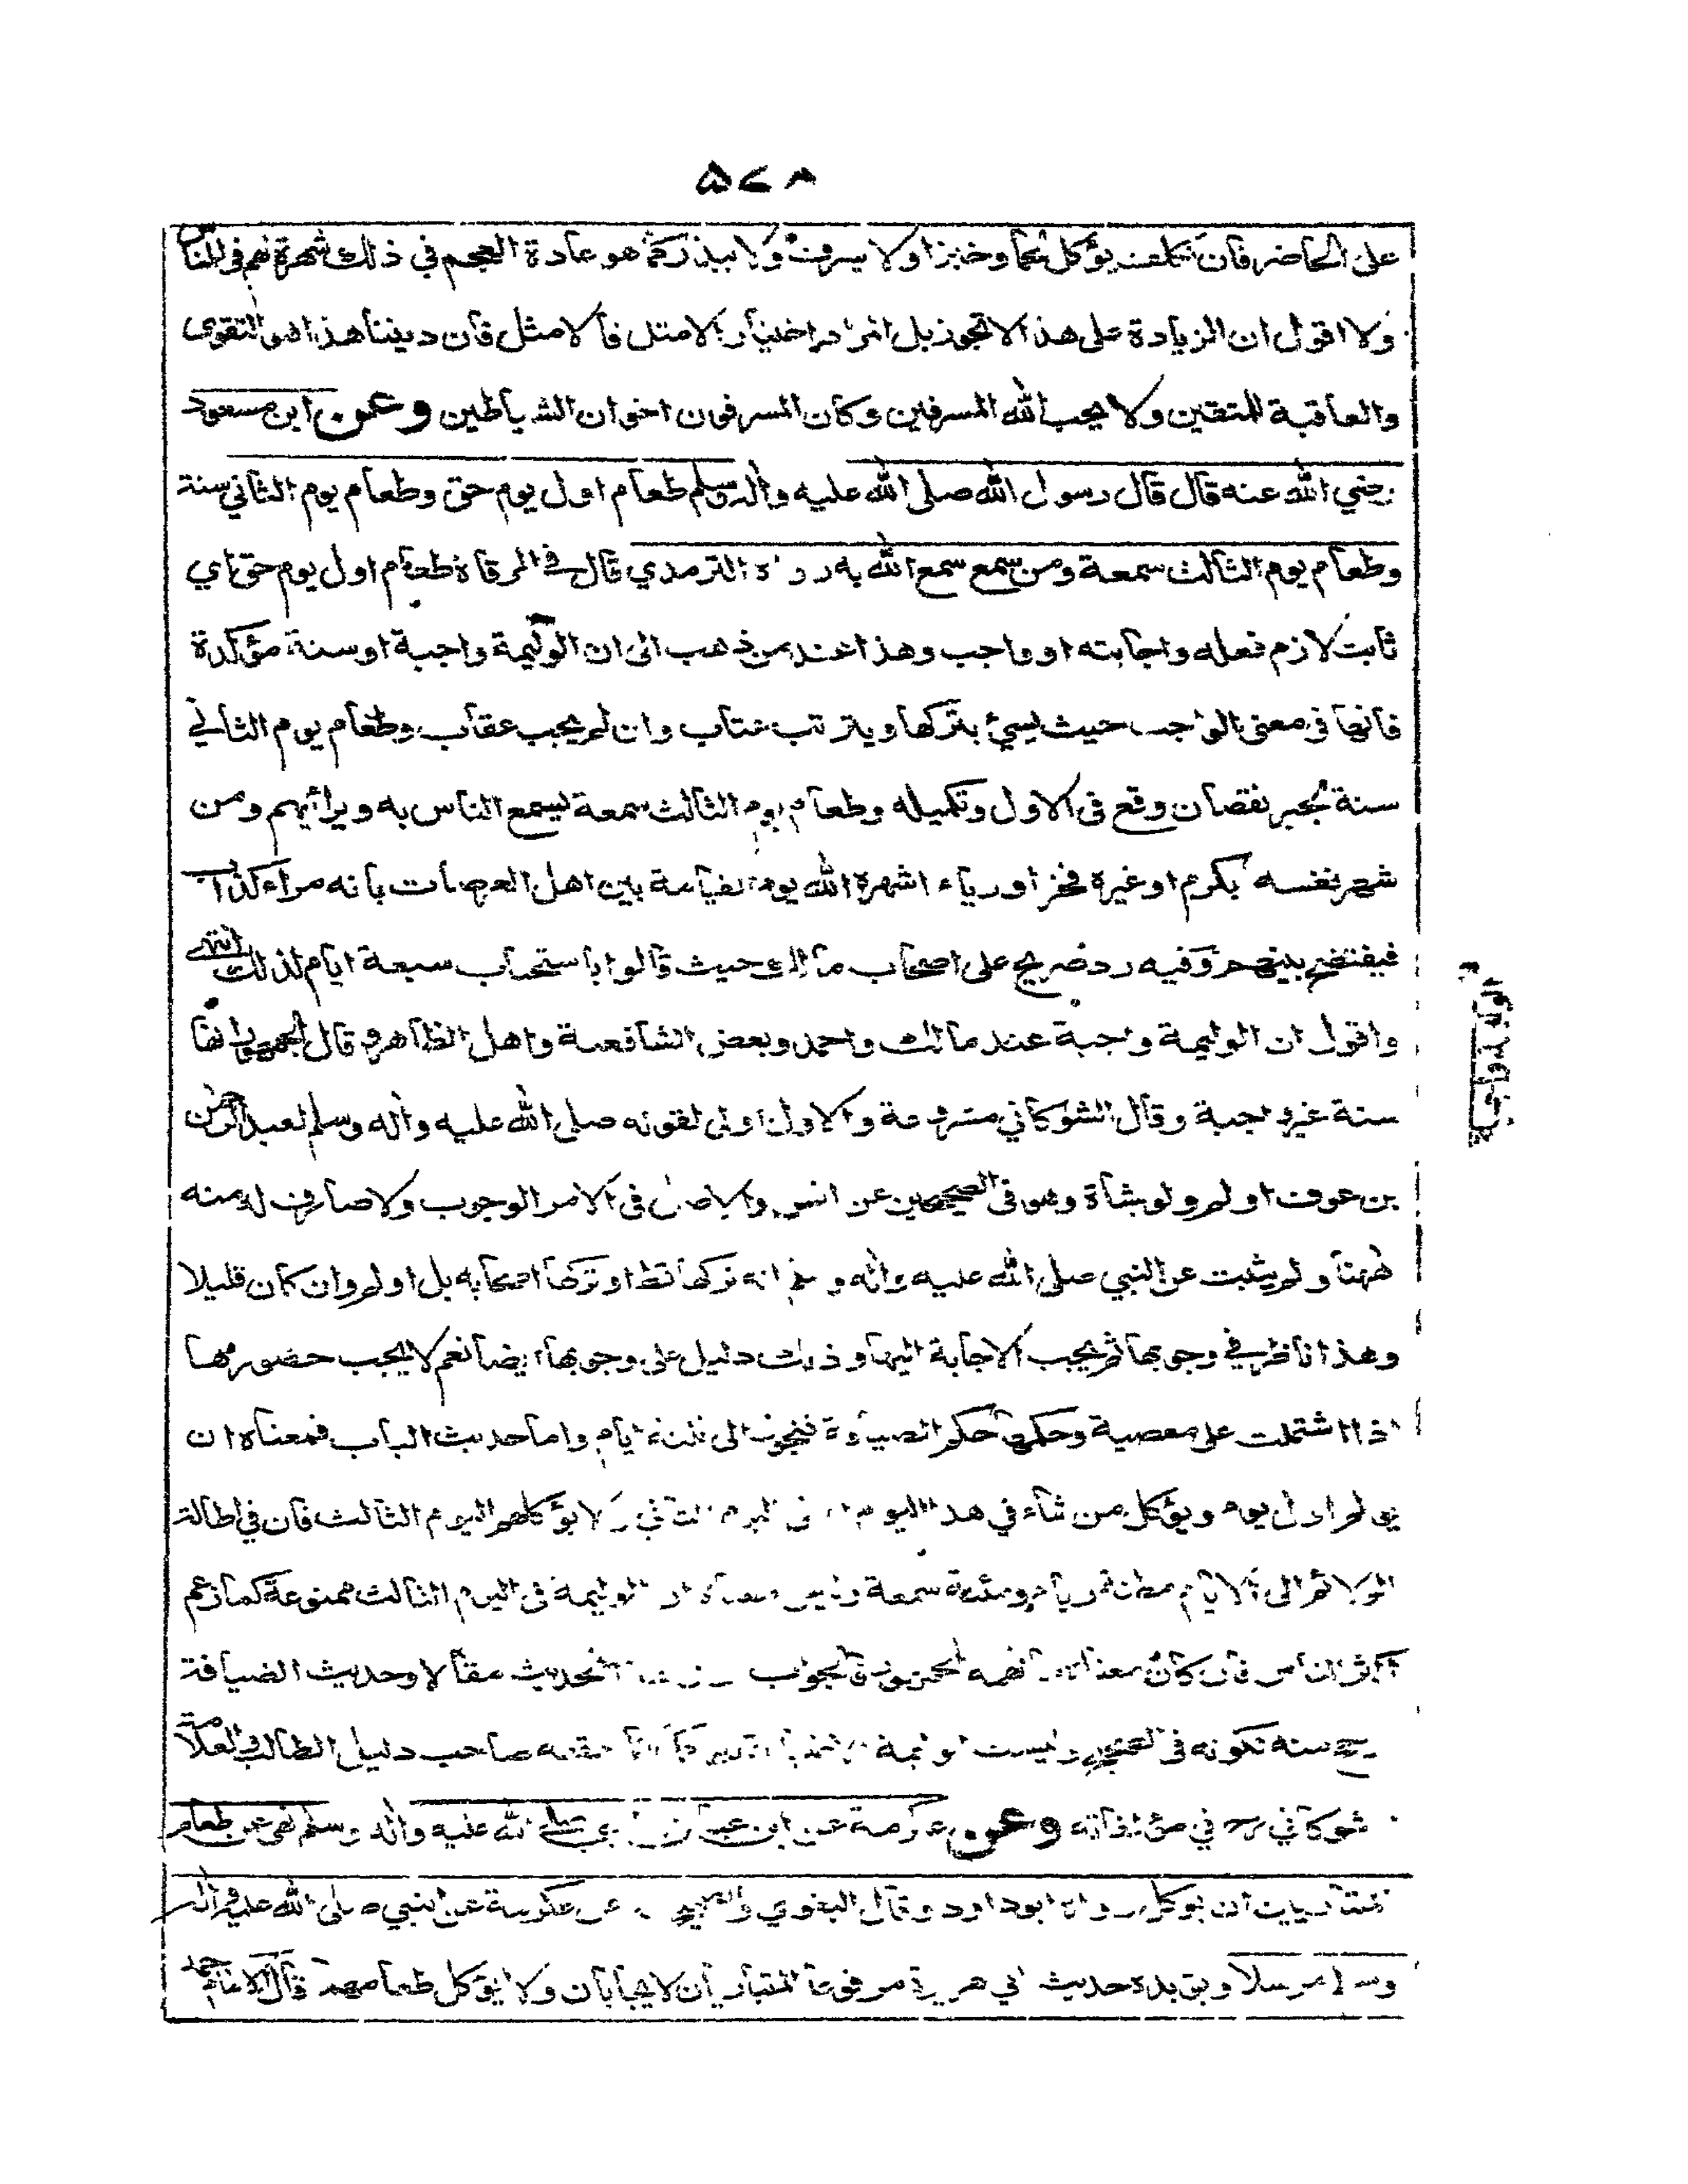 ۵۷۸
على الحاضر فان تكلف يؤكل لحما وخبزا ولا يسرف ولا يبذر كما هو عادة العجم في ذلك شهرة لهم في الناس
ولا اقول ان الزيادة على هذا لا تجوز بل المراد اختيار الامثل فالامثل فان ديننا هذا هو التقوى
والعاقبة للمتقين ولا يحب الله المسرفين وكان المسرفون اخوان الشياطين وعن ابن مسعود
رضي الله عنه قال قال رسول الله صلى الله عليه واله وسلم طعام اول يوم حق وطعام يوم الثاني سنة
وطعام يوم الثالث سمعة ومن سمع سمع الله به رواه الترمذي قال في المرقاة طعام اول يوم حق اي
ثابت لازم فعله واجابته او واجب وهذا عند من ذهب الى ان الوليمة واجبة او سنة مؤكدة
فانها في معنى الواجب حيث يسيئ بتركها ويترتب عتاب وان لم يجب عقاب وطعام يوم الثاني
سنة تجبر نقصان وقع في الاول وتكميله وطعام يوم الثالث سمعة ليسمع الناس به ويرائيهم ومن
شهر نفسه بكرم او غيره فخرا او رياء اشهره الله يوم القيامة بين اهل العرصات بانه مراء كذاب
فيفتضح بينهم وفيه رد صريح على اصحاب مالك حيث قالوا باستحباب سبعة ايام لذلك انتهى
واقول ان الوليمة واجبة عند مالك واحمد وبعض الشافعية واهل الظاهر وقال الجمهور انها
سنة غير واجبة وقال الشوكاني مشروعة والاول اولى لقوله صلى الله عليه واله وسلم لعبد الرحمن
بن عوف اولم ولو بشاة وهو في الصحيحين عن انس والاصل في الامر الوجوب ولا صارف له منه
ههنا ولم يثبت عن النبي صلى الله عليه واله وسلم انه تركها قط او تركها اصحابه بل اولم وان كان قليلا
وهذا ناظر في وجوبها ثم يجب الاجابة اليها وذلك دليل على وجوبها ايضا نعم لا يجب حضورها
اذا اشتملت على معصية وحكمها حكم الضيافة فتجوز الى ثلثة ايام واما حديث الباب فمعناه ان
يولم اول يوم ويؤكل من شاء في هذا اليوم في اليوم الثاني ولا يؤكلهم اليوم الثالث فان في اطالة
الولائم الى الايام مظنة رياء ومئنة سمعة وليس معناه ان الوليمة في اليوم الثالث ممنوعة كما زعم
اكثر الناس فان كان معناه فالجواب الحديث مقالا وحديث الضيافة
سنة لكونه في الصحيح وليست الوليمة صاحب دليل الطالب والعلامة
شوكاني في مؤلفاته وعن عكرمة عن ابن عباس صلى الله عليه واله وسلم نهى عن طعام
المتباريين ان يوكل رواه ابو داود وقال البغوي والصحيح عن عكرمة عن النبي صلى الله عليه واله
وسلم مرسلا ويؤيده حديث ابي هريرة مرفوعا المتباريان لا يجابان ولا يؤكل طعامهما قال الامام احمد